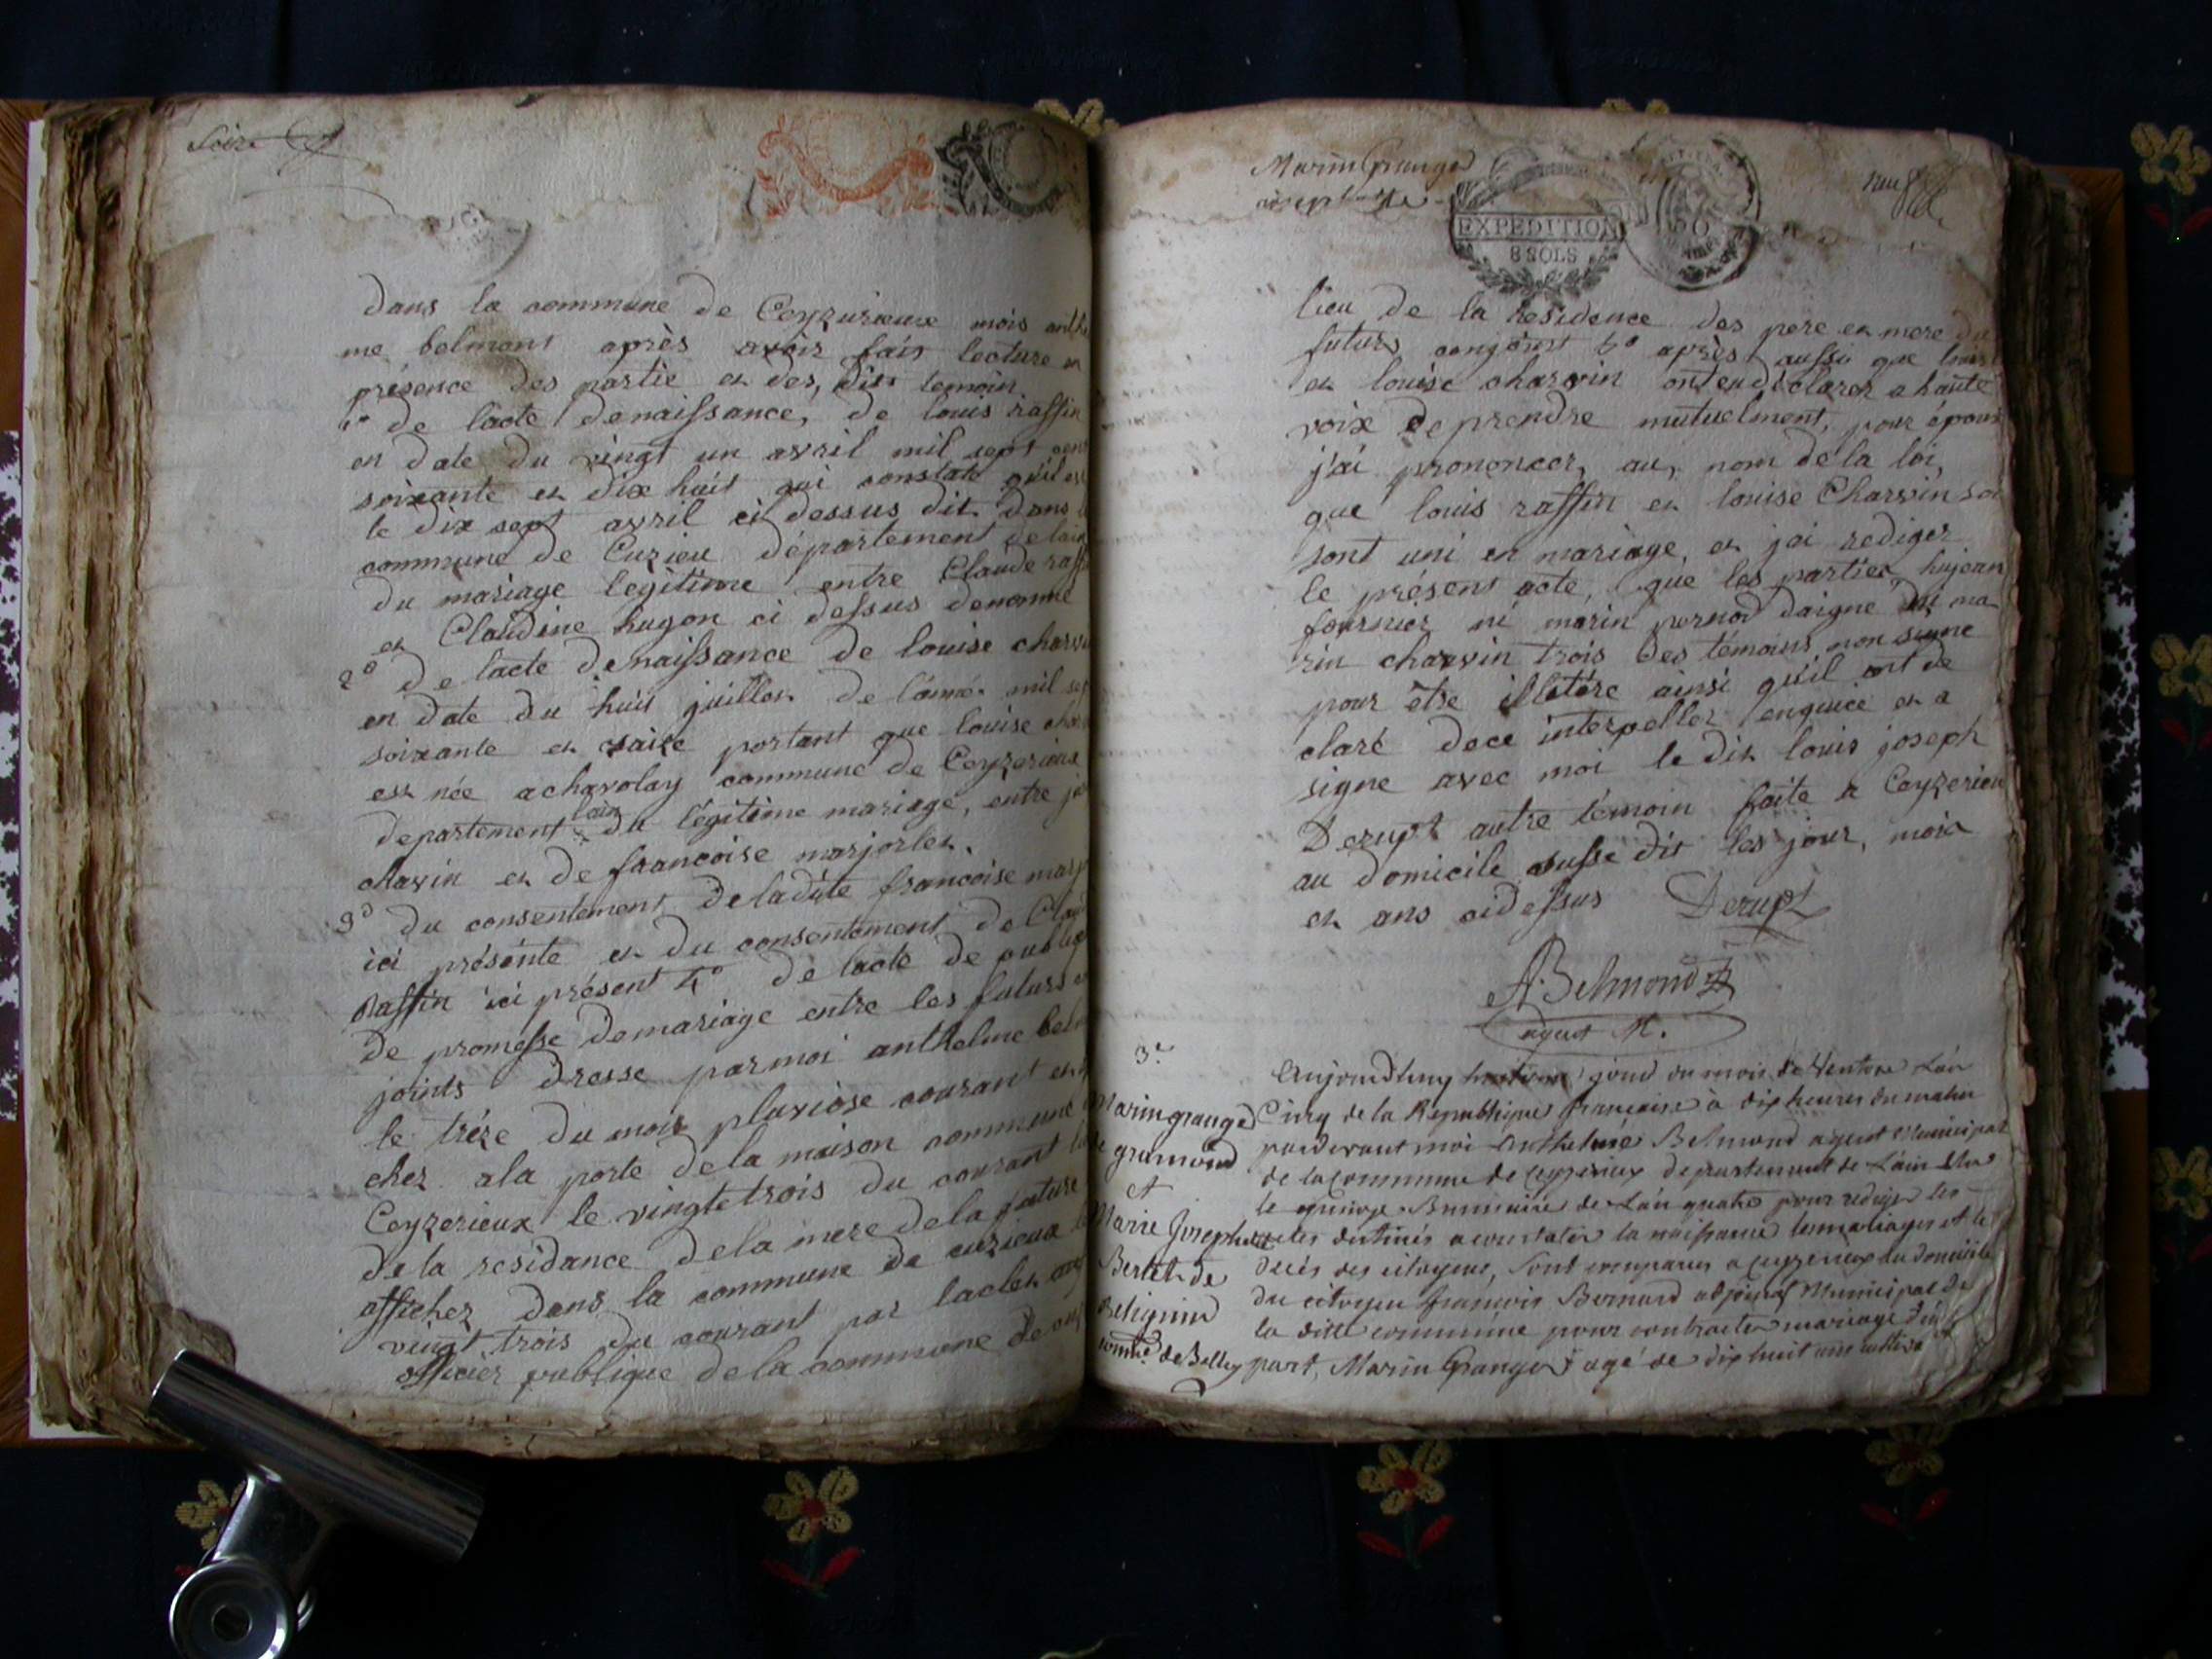 dans la commune de Ceyzurieux mois anthe
me belmont après avoir fait lecture en
présence des partie et des, dit temoin
1° de lacte denaissance, de louis raffin
en date du vingt un avril mil sept cent
soixante et dix huit qui constate quil est
le dix sept avril ci dessus dit dans la
commune de Cuzieu département delain
du mariage legitime entre Claude raffin
et Claudine hugon ci dessus denommé
2° de lacte denaissance de louise charvin
en date du huit juillet de lannée mil sept
soixante et saize portant que louise char
est née a chavolay commune de Ceyzerieux
departement lain du légitime mariage, entre
chavin et de francoise marjorlet.
3° du consentement deladite francoise marj
ici présente et du consentement de Claude
Raffin ici présent 4° de lacte de public
de promesse demariage entre les futurs con
joints dresse par moi anthelme belm
le trèze du mois pluviose courant et
chez a la porte dela maison commune
Ceyzerieux le vingtetrois du courant
de la residance dela mere dela future
affichez dans la commune de cuzieux le
vingt trois du courant par lactes
officier publique dela commune de cuz
Marin Grange
EXPEDITION
8 SOLS
lieu de la residence des pere et mere du
futurs conjoint 5° après aussi que louis
et louise charvin ont eu déclarer a haute
voix de prendre mutuelment, pour épous
j'ai prononcer, au, nom de la loi,
que louis raffin et louise Charvin soi
sont uni en mariage, et jai rediger
le présent acte, que les parties, hujean
fournier ni marin pernod daigne ni ma
rin charvin trois des témoins non signe
pour être illetére ainsi qu'il ont de
claré dece interpellez enquice et a
signe avec moi le dit louis joseph
Derupt autre témoin faite a Ceyzerieu
au domicile susse dit les jour, mois
et ans cidessus Derupt
A. Belmond
agent M.
3e
Marin grange
de gramond
et
Marie Josephe
Bertet de
Belignin
comne. de Belley
Aujourdhuy huitieme jour du mois de Ventose L'an
Cinq de la Republique francaise à dix heures du matin
pardevant moi Anthelme Belmond agent Municipal
de la Commune de Ceyzerieux departement de L'ain Elu
le quinze Brumaire de L'an quatre pour rediger les
actes destinés a constater la naissance les mariages et le
decès des citoyens, sont comparus a Ceyzerieux au domicile
du citoyen francois Bernard adjoint Municipal de
la ditte commune pour contracter mariage d'un
part, Marin Grange agé de dix huit ans